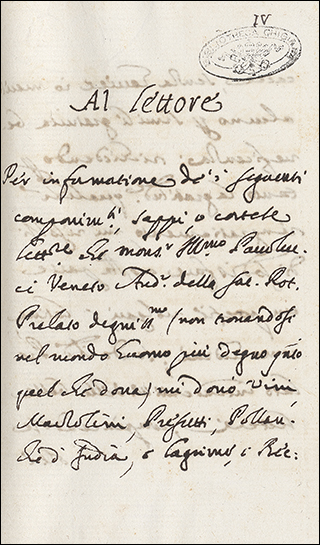 IV
BIBLIOTHECA CHIGIANA
Al lettore
Per informatione de i seguenti
componim.ti, sappi, o cortese
lettore che mons.r Ill.mo Paoluc-
ci Veneto Aud.r della Sac. Rot.
Prelato degniss.mo (non trovandosi
nel mondo huomo più degno q.to
quel che dona) mi donò Vini,
Prefetti, Pollan-
che d'India, e